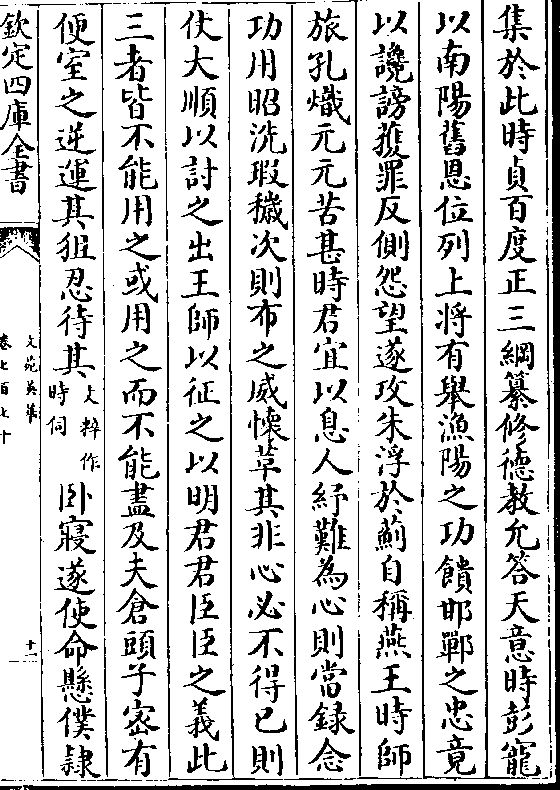 集於此時貞百度正三綱纂修德教允答天意時彭寵
以南陽舊恩位列上將有舉漁陽之功饋邯鄲之忠竟
以讒謗獲罪反側怨望遂攻朱浮於薊自稱燕王時師
旅孔熾元元苦甚時君宜以息人紓難為心則當録念
功用昭洗瑕穢次則布之威懐革其非心必不得已則
仗大順以討之出王師以征之以明君君臣臣之義此
三者皆不能用之或用之而不能盡及夫倉頭子宻有
便室之逆運其狙忍待其文粹作時伺卧寢遂使命懸僕隷
欽定四庫全書
文苑英華
卷七百七十
十一